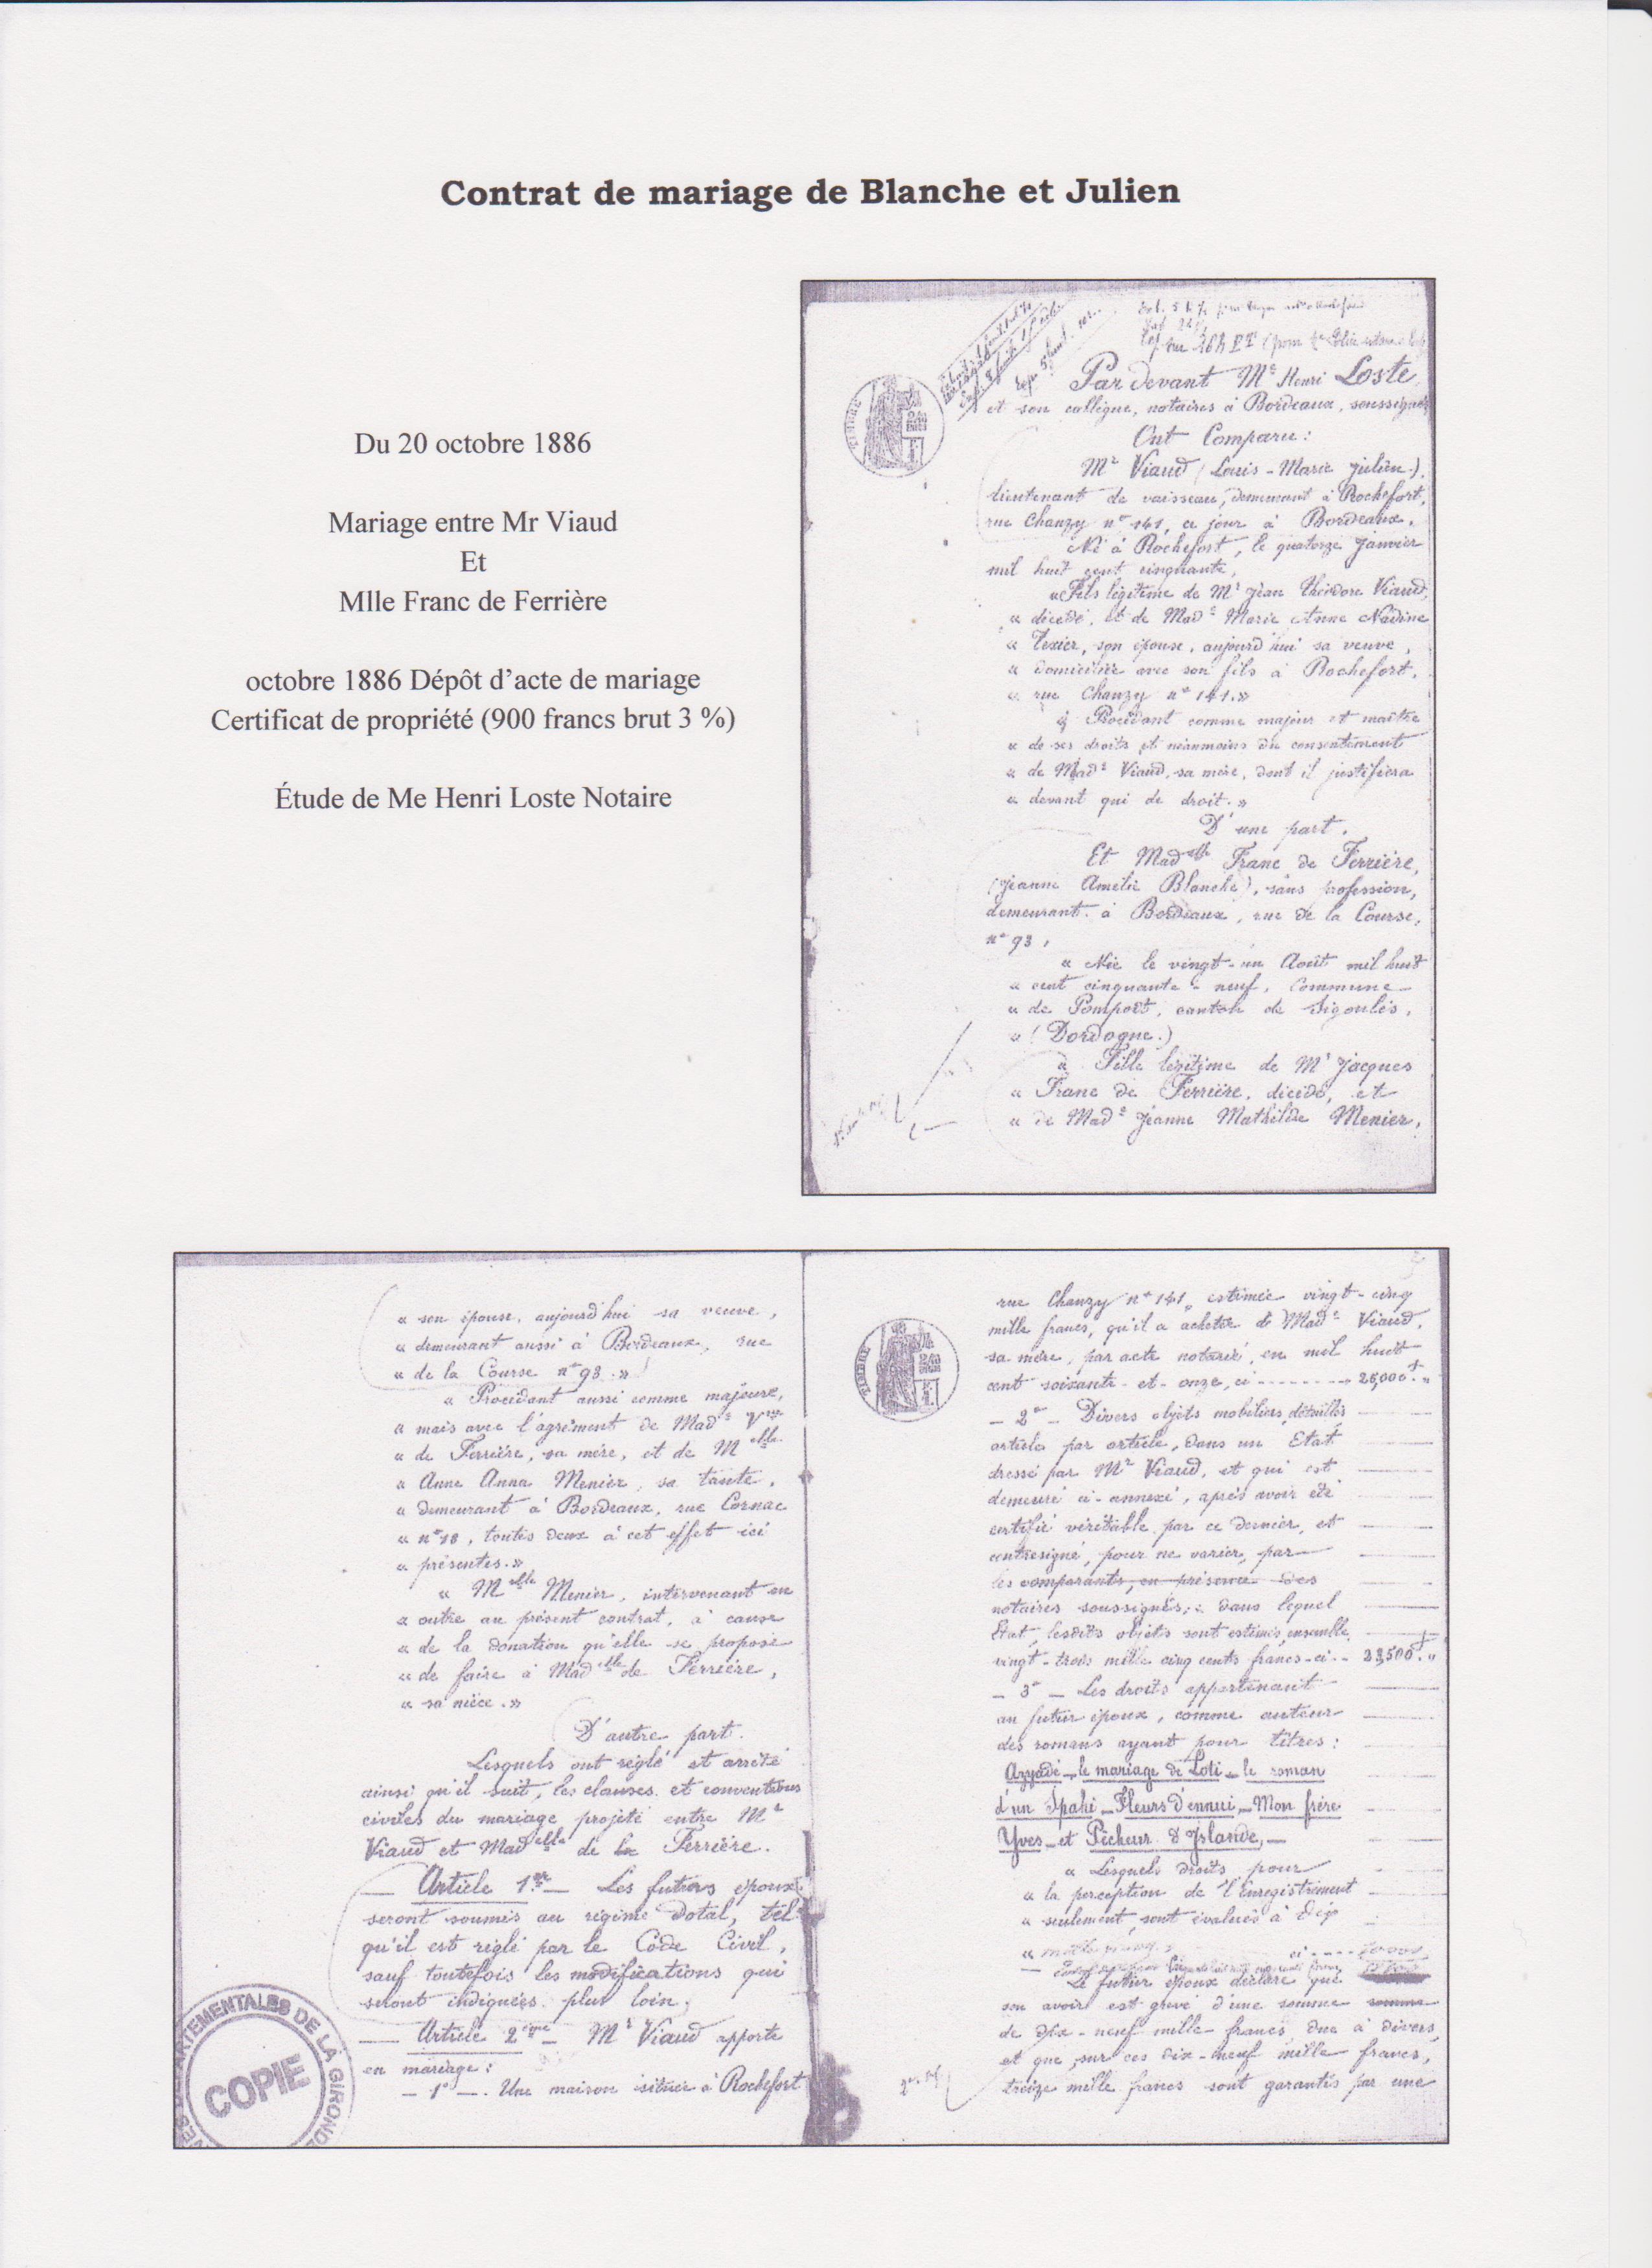 Contrat de mariage de Blanche et Julien
Du 20 octobre 1886
Mariage entre Mr Viaud
Et
Mlle Franc de Ferrière
octobre 1886 Dépôt d’acte de mariage
Certificat de propriété (900 francs brut 3 %)
Étude de Me Henri Loste Notaire
Par devant Me Henri Loste,
et son collègue, notaires à Bordeaux, soussignés
Ont Comparu :
Mr Viaud (Louis-Marie Julien.)
lieutenant de vaisseau, demeurant à Rochefort,
rue Chanzy no 141, ce jour à Bordeaux.
Né à Rochefort, le quatorze Janvier
mil huit cent cinquante,
« Fils légitime de Mr Jean Théodore Viaud,
« décédé, et de Made Marie Anne Nadine
« Texier, son épouse, aujourd'hui sa veuve,
« domiciliée avec son fils à Rochefort,
« rue Chanzy no 141.»
« Procédant comme majeur et maître
« de ses droits et néanmoins du consentement
« de Made Viaud, sa mère, dont il justifiera
« devant qui de droit.»
D'une part.
Et Madelle Franc de Ferrière,
(Jeanne Amélie Blanche), sans profession,
demeurant à Bordeaux, rue de la Course,
no 93,
« Née le vingt-un Août mil huit
« cent cinquante-neuf, Commune
« de Pomport, canton de Sigoulès,
« (Dordogne.)
« Fille légitime de Mr Jacques
« Franc de Ferrière, décédé, et
« de Made Jeanne Mathilde Menier,
« son épouse, aujourd'hui sa veuve,
« demeurant aussi à Bordeaux, rue
« de la Course no 93.»
« Procédant aussi comme majeure,
« mais avec l'agrément de Made Vve
« de Ferrière, sa mère, et de Melle
« Anne Anna Menier, sa tante,
« demeurant à Bordeaux, rue Cornac
« no 18, toutes deux à cet effet ici
« présentes.»
« Melle Menier, intervenant en
« outre au présent contrat, à cause
« de la donation qu'elle se propose
« de faire à Madelle de Ferrière,
« sa nièce.»
D'autre part.
Lesquels ont réglé et arrêté
ainsi qu'il suit, les clauses et conventions
civiles du mariage projeté entre Mr
Viaud et Madelle de la Ferrière.
— Article 1er — Les futurs époux
seront soumis au régime Dotal, tel
qu'il est réglé par le Code Civil,
sauf toutefois les modifications qui
seront indiquées plus loin,
— Article 2ème — Mr Viaud apporte
en mariage :
— 1o —. Une maison située à Rochefort
ARTEMENTALES DE LA GIRONDE
COPIE
rue Chanzy no 141, estimée vingt-cinq
mille francs, qu'il a achetée de Made Viaud,
sa mère, par acte notarié, en mil huit
cent soixante-et-onze, ci -------- 25,000 f "
— 2o — Divers objets mobiliers, détaillés
article par article, dans un Etat
dressé par Mr Viaud, et qui est
demeuré ci-annexé, après avoir été
certifié véritable par ce dernier, et
contresigné, pour ne varier, par
les comparants, en présence des
notaires soussignés; dans lequel
Etat, lesdits objets sont estimés, ensemble,
vingt-trois mille cinq cents francs - ci - 23,500 f "
— 3o — Les droits appartenant
au futur époux, comme auteur
des romans ayant pour titres :
Azyadé _ le mariage de Loti _ le roman
d'un Spahi _ Fleurs d'ennui _ Mon frère
Yves _ et Pêcheur d'Islande, _
« Lesquels droits, pour
« la perception de l'Enregistrement
« seulement, sont évalués à dix
Le futur époux déclare que
son avoir est grevé d'une somme somme
de dix-neuf mille francs, due à divers,
et que sur ces dix-neuf mille francs,
treize mille francs sont garantis par une